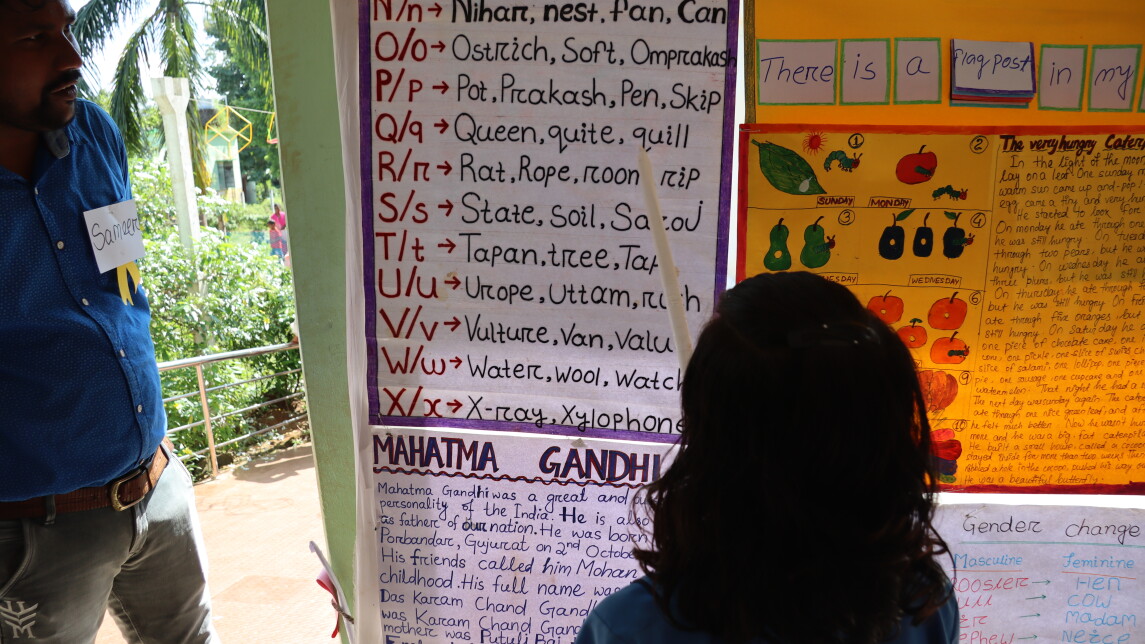 Sameer
N/n → Nihar, nest, Pan, Can
O/o → Ostrich, Soft, Omprakash
P/p → Pot, Prakash, Pen, Skip
Q/q → Queen, quite, quill
R/r → Rat, Rope, room rip
S/s → State, Soil,
T/t → Tapan, tree,
U/u → Urope, Uttam,
V/v → Vulture, Van, Valu
W/w → Water, wool, watch
X/x → X-ray, Xylophone
MAHATMA GANDHI
Mahatma Gandhi was a great and
personality of the India. He is also
as father of our nation. He was born
Porbandar, Gujurat on 2nd October
His friends called him Mohan
childhood. His full name was
Das Karam Chand Gandh
was Karam Chand Gandh
mother was Putuli Bai
There is a Flag post in my
1
2
SUNDAY MONDAY
3
4
WEDNESDAY
6
9
10
The very hungry Cater
In the light of the moo
lay on a leaf. One sunday m
warm sun came up and pop!
egg came a tiny and very hun
He started to look for
On monday he ate through one
he was still hungry. On tuesda
through two pears, but he wa
hungry. On wednesday he a
three plums, but he was still
On thursday he ate through
but he was still hungry. On frid
ate through five oranges but
still hungry. On saturday he
one piece of chocolate cake, one i
cone, one pickle, one slice of swiss c
slice of salami, one lollipop, one piece
pie, one sausage, one cupcake and one
watermelon. That night he had a
The next day was sunday again. The cater
ate through one nice green leaf, and a
he felt much better. Now he wasn't hun
more and he was a big, fat caterpill
He built a small house, called a cocoo
stayed inside for more than two weeks. Then
nibbled a hole in the cocoon, pushed his way
He was a beautiful butterfly.
Gender change
Masculine Feminine
Rooster → Hen
→ Cow
→ Madam
→ Neice